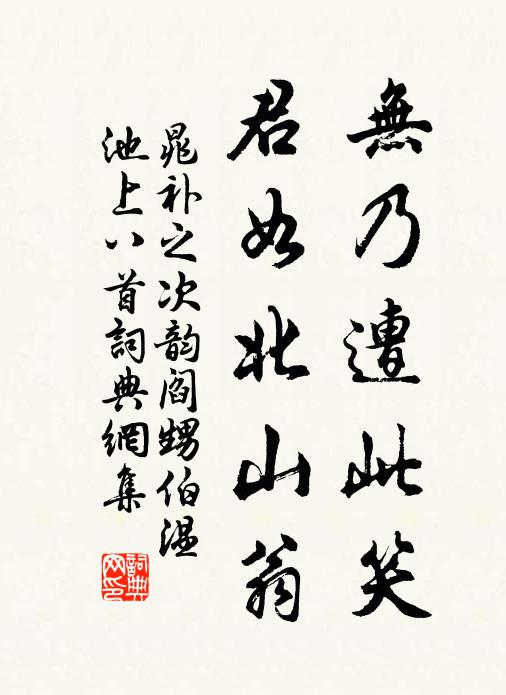 無乃遭此笑
君如北山翁
晁补之次韵阎甥伯温
池上八首詞典網集
詞典網印